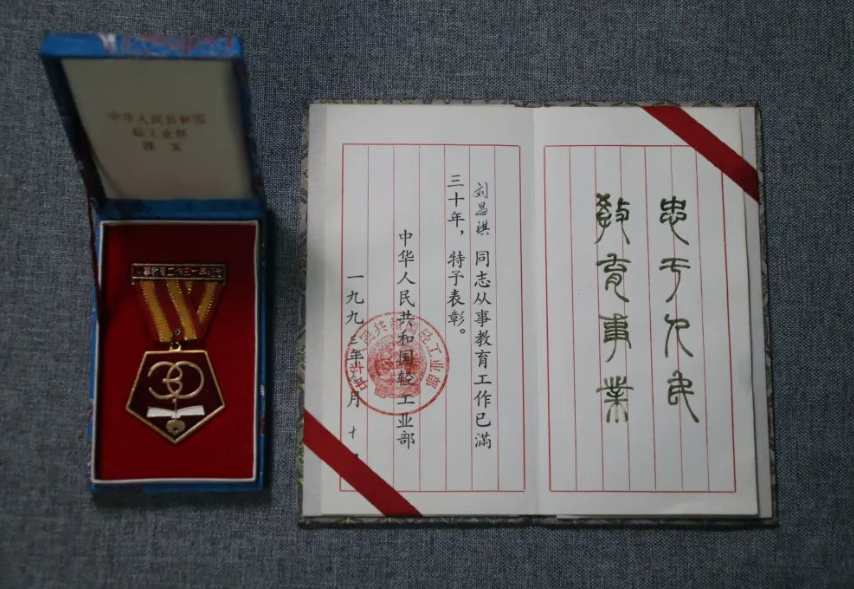 中华人民共和国
轻工业部
从事教育工作三十年
30
忠于人民
教育事业
刘昌祺 同志从事教育工作已滿
三十年，特予表彰。
中华人民共和国轻工业部
一九九 年 月 十
中华人民共和国轻工业部